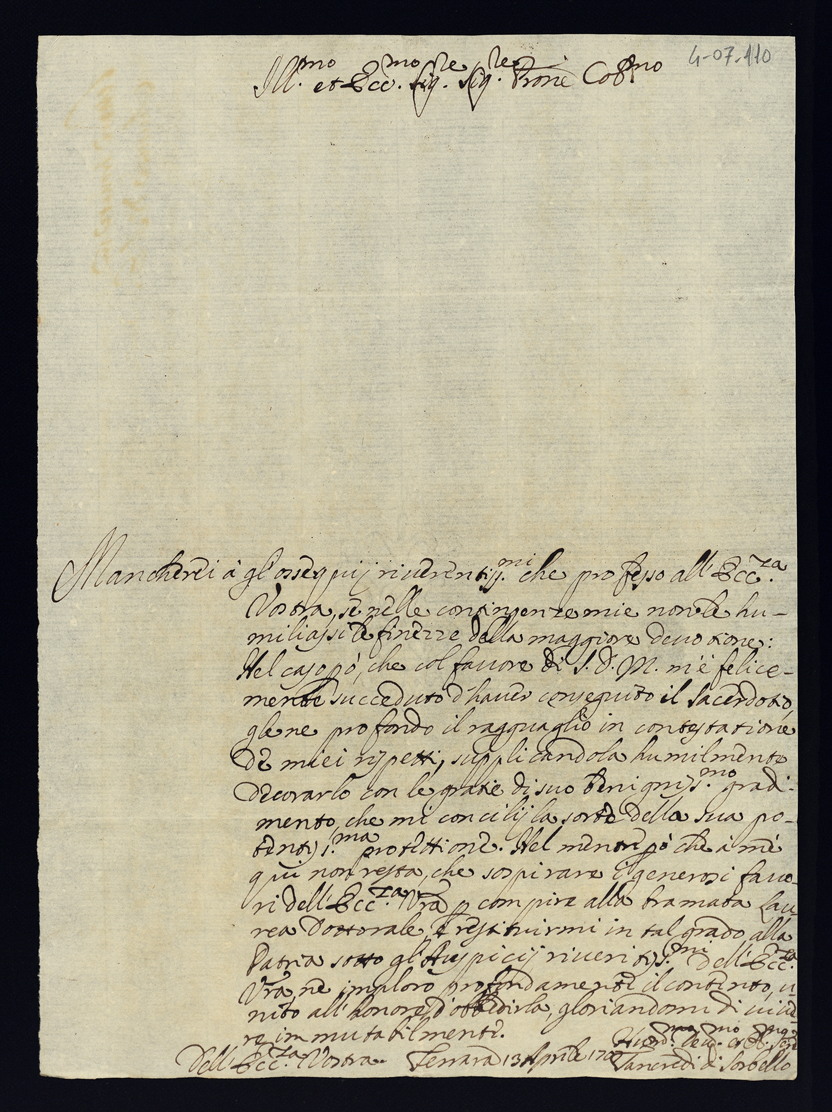 4-07.110
Ill.mo et Ecc.mo Sig.re Sig.re Prone Col.mo
Mancherei à gl'osseqvij riverentiss.mi che professo all'Ecc.za
Vostra, se nelle contingenze mie non le hu-
miliassi le finezze della maggiore devotione:
Nel caso pò, che col favore di S.D.M. m'è felice-
mente succeduto d'haver conseguito il Sacerdotio,
gle ne profondo il ragguaglio in contestatione
de miei rispetti, supplicandola humilmente
decorarlo con le gratie di suo benigniss.mo gradi-
mento, che mi concilij la sorte della sua po-
tentiss.ma protettione. Nel mentre pò che à me
qui non resta, che sospirare i generosi favo-
ri dell'Ecc.za Vrã p compire alla bramata Lau-
rea Dottorale, e restituirmi in tal grado alla
Patria sotto gl'Auspicij riveritiss.mi dell'Ecc.za
Vrã, ne imploro profondamente il contento, u-
nito all'honore d'obbedirla, gloriandomi di vive-
re immutabilmente.
Dell'Ecc.za Vostra Ferrara 13 Aprile
Tancredi di Sorbello